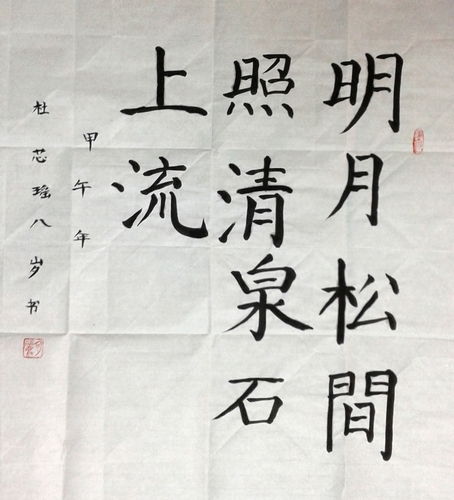 明月松間
照清泉石
上流
甲午年
杜芯瑶八岁书